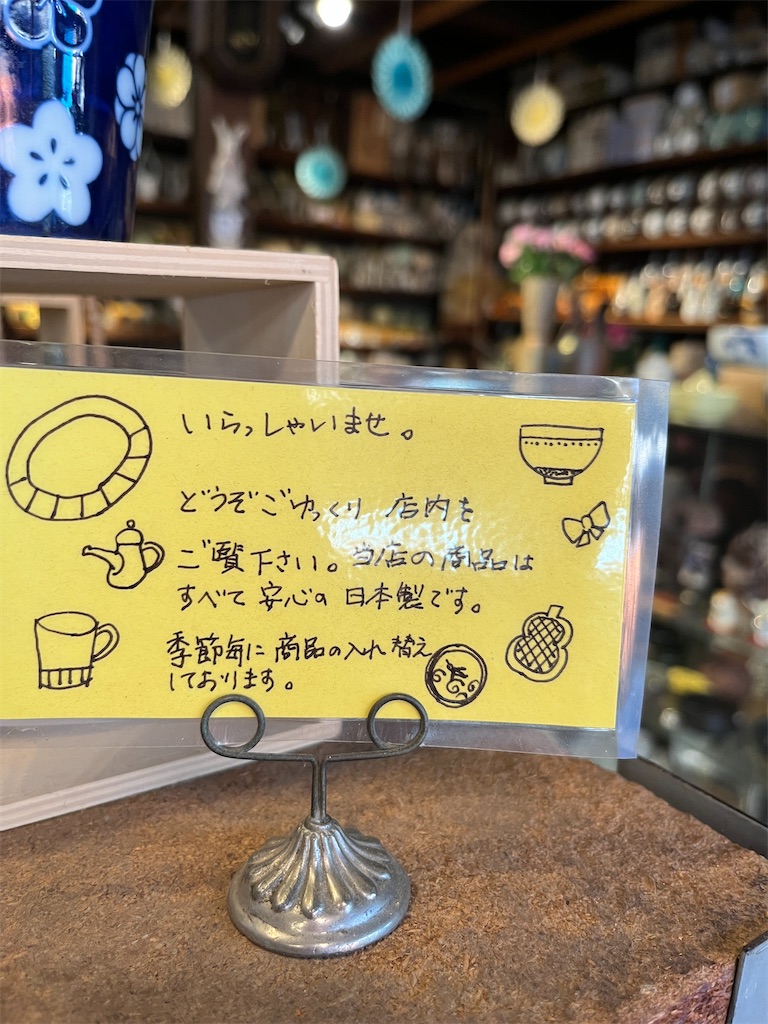 いらっしゃいませ。
どうぞごゆっくり 店内を
ご覧下さい。当店の商品は
すべて 安心の 日本製です。
季節毎に 商品の入れ替え
しております。